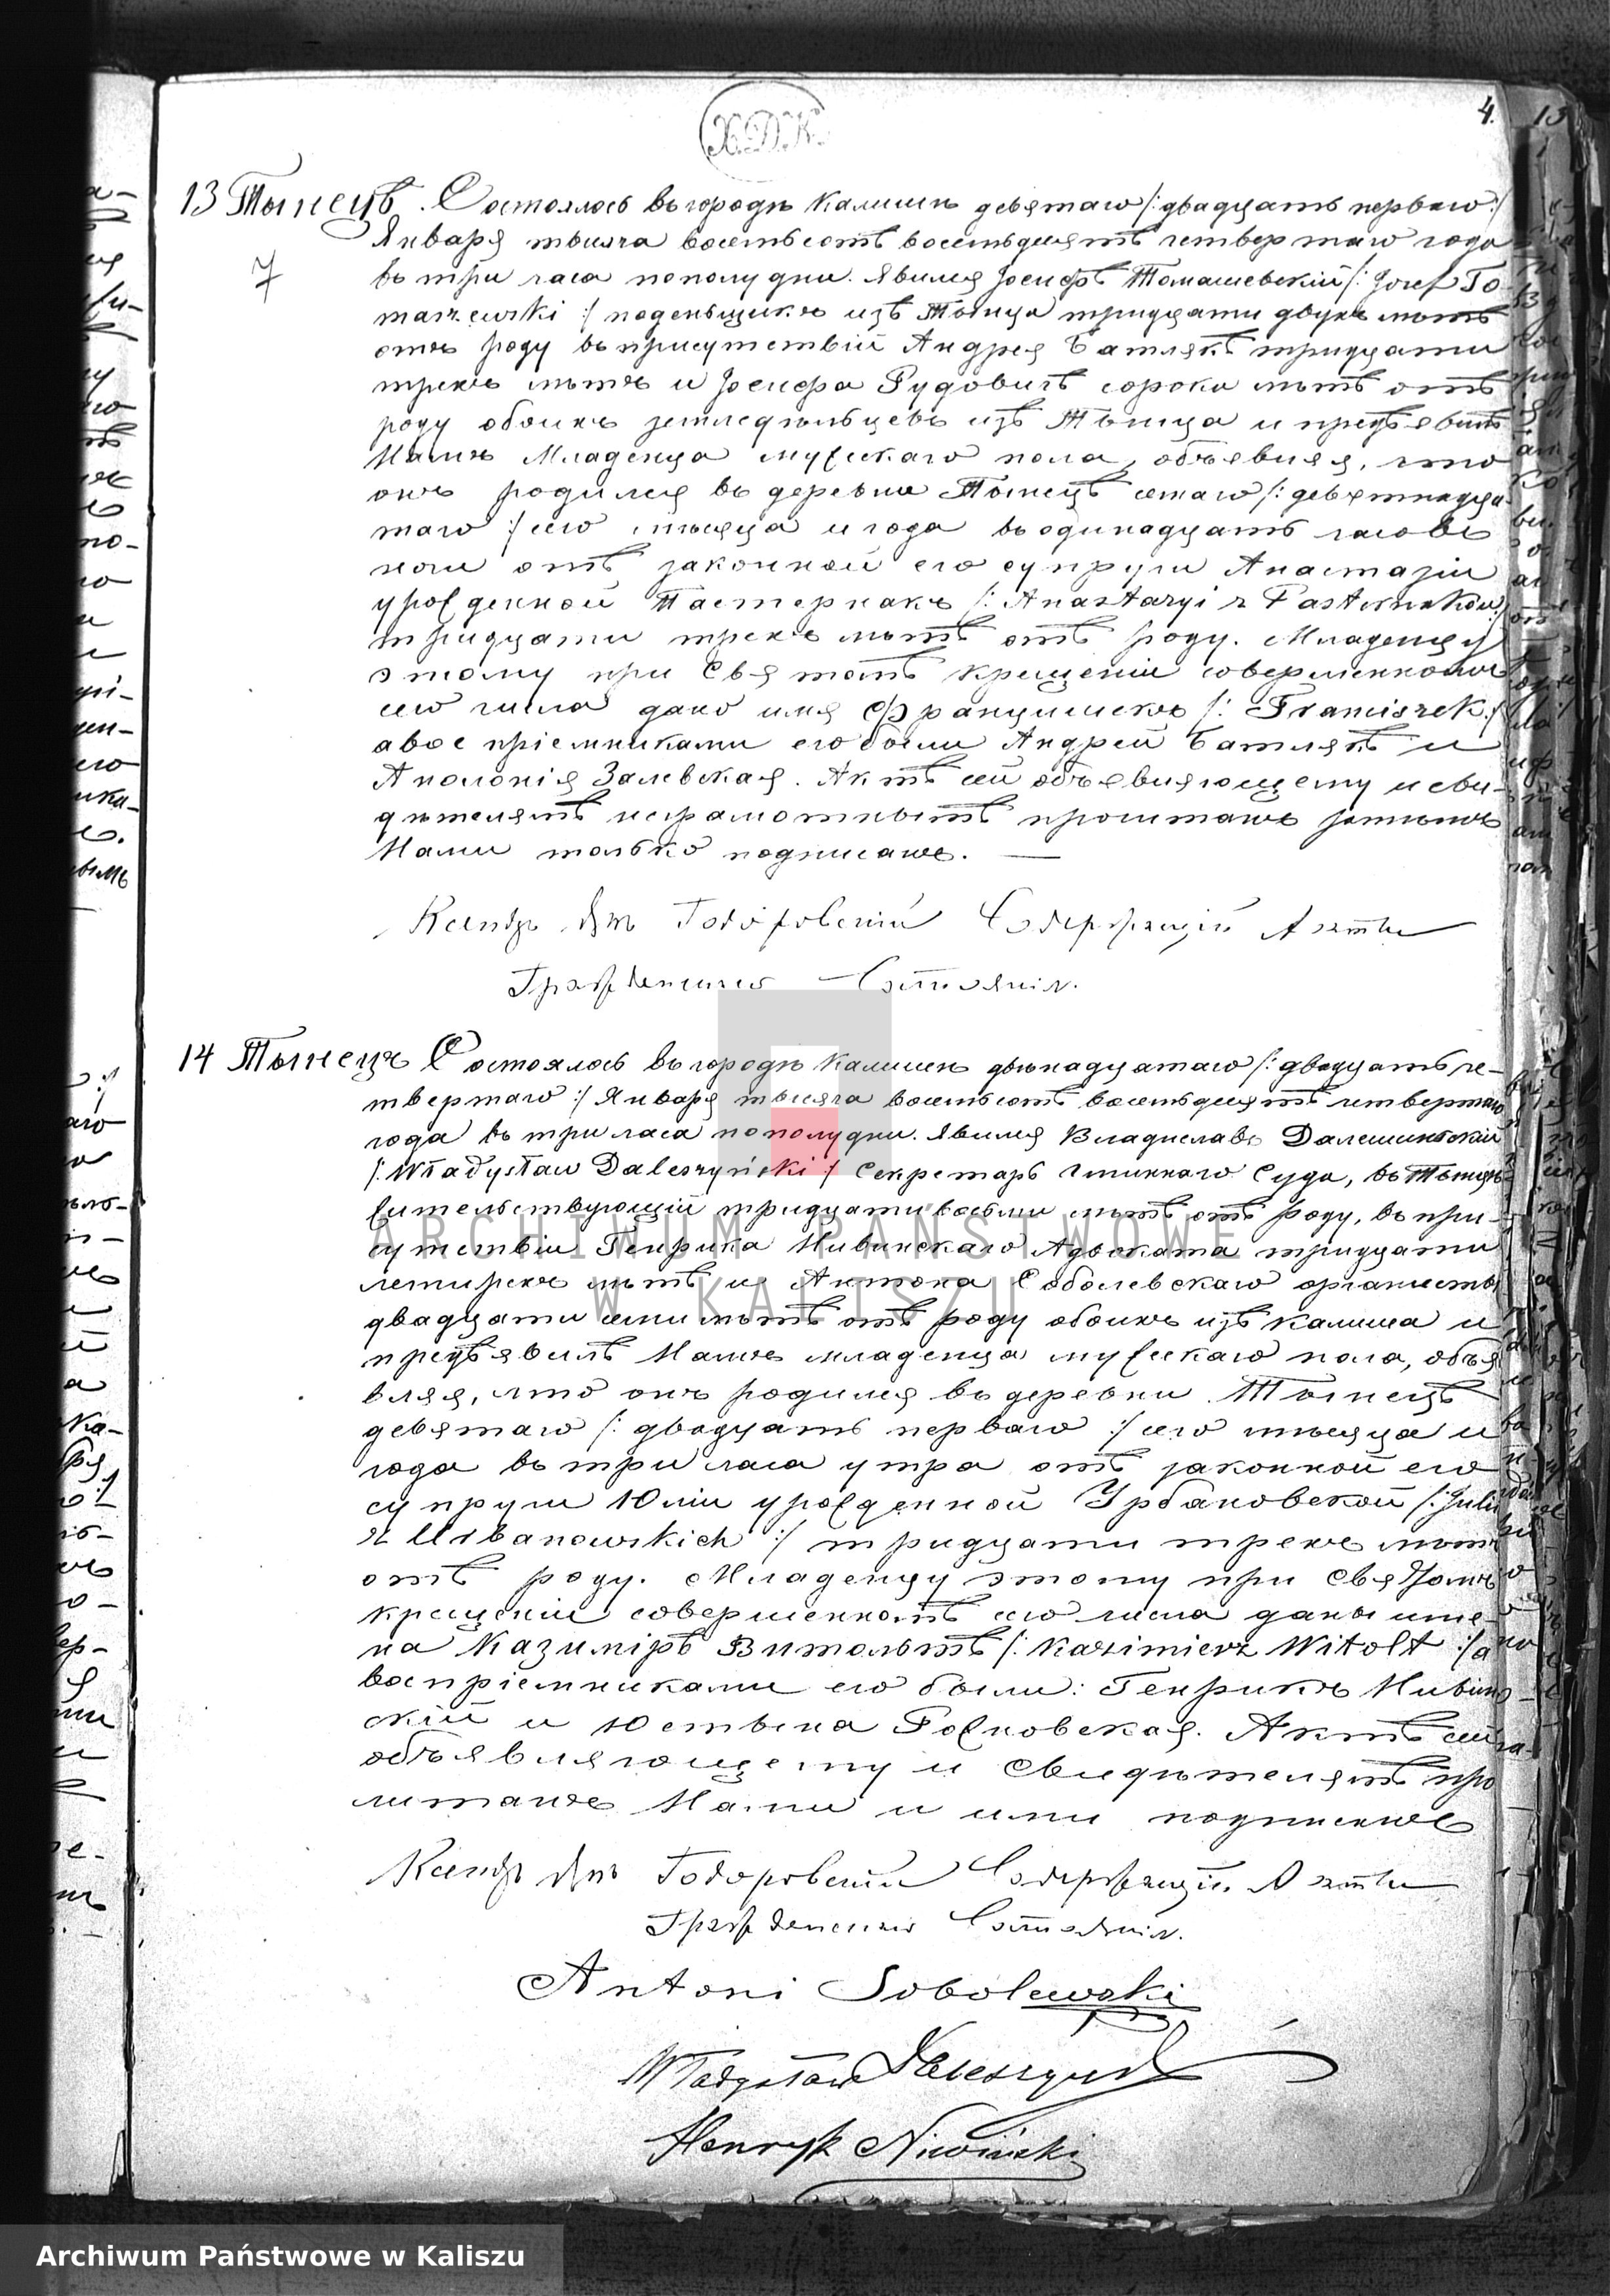 4.
Х.Д.К.
13 Тынецъ. Состоялось въ городѣ Калишѣ девятаго /: двадцать перваго :/
7
Января тысяча восемьсотъ восемьдесятъ четвертаго года
въ три часа пополудни. Явился Іосифъ Томашевскій /: Josef To-
maszewski :/ поденьщикъ изъ Тынца тридцати двухъ лѣтъ
отъ роду въ присутствіи Андрея Батлякъ тридцати
трехъ лѣтъ и Іосифа Рудовичъ сорока лѣтъ отъ
роду обоихъ земледѣльцевъ изъ Тынца и предъявилъ
Намъ Младенца мужскаго пола, объявляя, что
онъ родился въ деревнѣ Тынецъ седьмаго /: девятнадца-
таго :/ сего мѣсяца и года въ одинадцать часовъ
ночи отъ законной его супруги Анастазіи
урожденной Пастернакъ /: Anastazyi z Pasternaków :/
тридцати трехъ лѣтъ отъ роду. Младенцу
этому при Святомъ крещеніи совершенномъ
сего числа дано имя Францишекъ /: Franciszek :/
а воспріемниками его были Андрей Батлякъ и
Аполонія Залевская. Актъ сей объявляющему и сви-
дѣтелямъ неграмотнымъ прочитанъ затѣмъ
Нами только подписанъ. —
Ксендзъ Янъ Годоровскій Содержащій Акты
Гражданскаго Состоянія.
14 Тынецъ Состоялось въ городѣ Калишѣ двѣнадцатаго /: двадцать че-
твертаго :/ Января тысяча восемьсотъ восемьдесятъ четвертаго
года въ три часа пополудни. Явился Владиславъ Далешинскій
/: Władysław Daleszyński :/ Секретарь Гминнаго Суда, въ Тынцѣ
жительствующій тридцати восьми лѣтъ отъ роду, въ при-
сутствіи Генрика Нивинскаго Адвоката тридцати
четырехъ лѣтъ и Антона Соболевскаго органисты
двадцати семи лѣтъ отъ роду обоихъ изъ Калиша и
предъявилъ Намъ младенца мужскаго пола, объя-
вляя, что онъ родился въ деревни Тынецъ
девятаго /: двадцать перваго :/ сего мѣсяца и
года въ три часа утра отъ законной его
супруги Юліи урожденной Урбановской /: Julii
z Urbanowskich :/ тридцати трехъ лѣтъ
отъ роду. Младенцу этому при Святомъ
крещеніи совершенномъ сего числа даны име-
на Казиміръ Витольтъ /: Kazimierz Witolt :/ а
воспріемниками его были: Генрикъ Нивин-
скій и Юстына Рожновская. Актъ сей
объявляющему и свидѣтелямъ про-
читанъ Нами и ими подписанъ
Ксендзъ Янъ Годоровскій Содержащій Акты
Гражданскаго Состоянія.
Antoni Sobolewski
Władysław Daleszyński
Henryk Niwiński
ARCHIWUM PAŃSTWOWE
W KALISZU
Archiwum Państwowe w Kaliszu